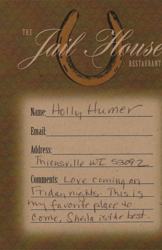 THE
Jail House
RESTAURANT
Name: Holly Humer
Email:
Address:
Thiensville WI 53092
Comments: Love coming on
Friday nights. This is
my favorite place to
come, Sheila is the best.